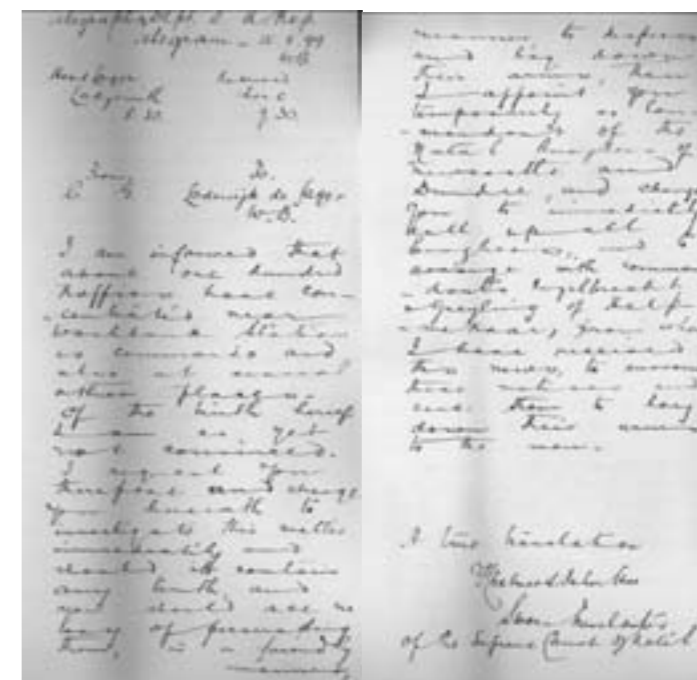 Telegram
Received
Ladysmith
9.30
From
To
C. G. Lodewijk de Jager
W. B.
I am informed that
about one hundred
Kaffirs have con-
-centrated near
Waschbank Station
as commando and
also at several
other places.
Of the truth hereof
I am as yet
not convinced.
I request you
therefore and charge
you herewith to
investigate this matter
immediately and
should it contain
any truth and
you should see no
way of persuading
them, in a friendly
manner,
manner to disperse
and lay down
their arms, then
I appoint you
temporarily as Com-
-mandant of the
Natal Burghers of
Newcastle and
Dundee, and charge
you to immediately
call up all
burghers, and to
arrange with comman-
-dants Engelbrecht
Greyling of
from whom
I have received
this news, to surround
these natives and
them to lay
down their arms
to the man.
A true translation
Sworn Translator
of the Supreme Court of Natal